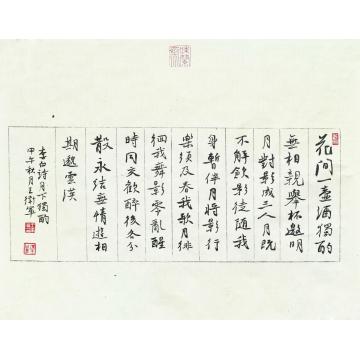 花间一壺酒獨酌
無相親舉杯邀明
月對影成三人月既
不解飲影徒隨我
身暫伴月將影行
樂須及春我歌月徘
徊我舞影零亂醒
時同交歡醉後各分
散永結無情遊相
期邈雲漢
李白诗月下獨酌
甲午秋月王衛軍